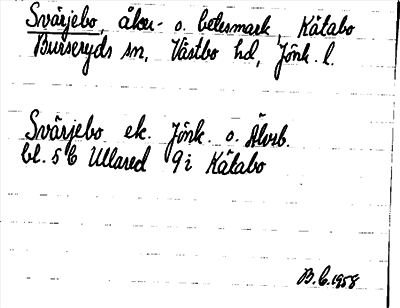 Svärjebo, åker- o. betesmark, Kätabo
Burseryds sn, Västbo hd, Jönk. l.
Svärjebo ek. Jönk. o. Älvsb.
bl. 5 C Ullared 9 i Kätabo
B. C. 1958